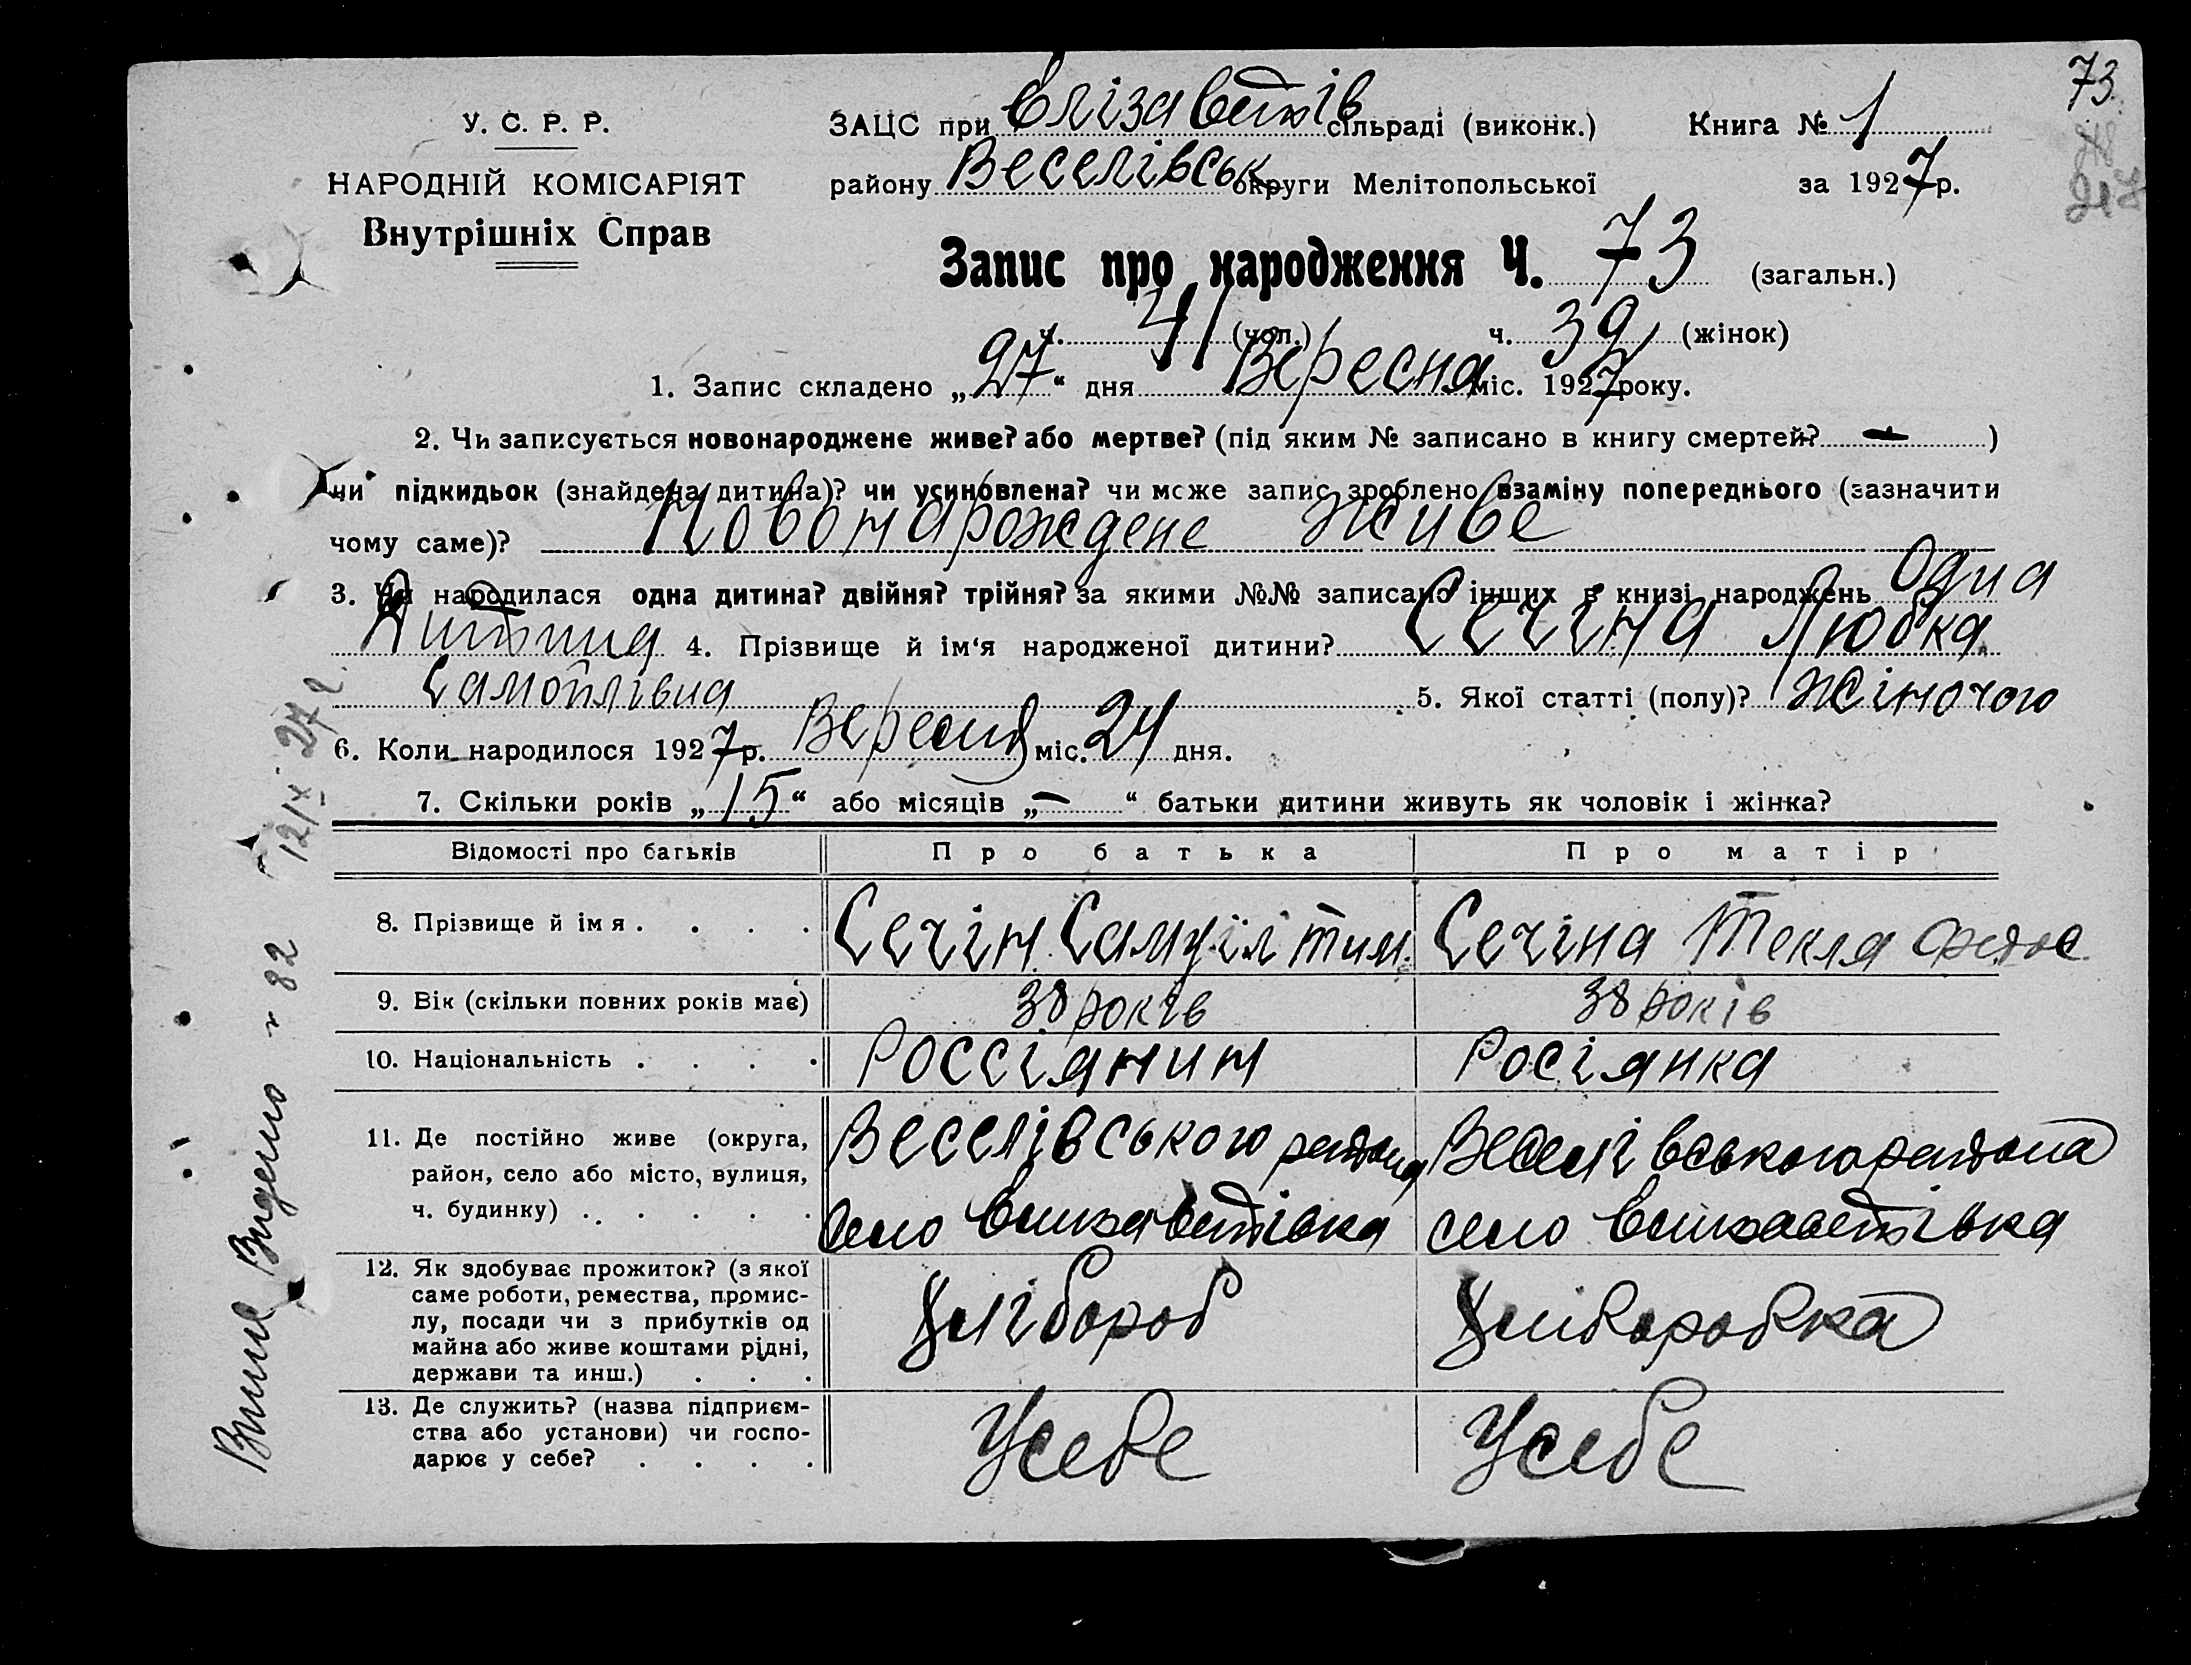 73
У. С. Р. Р.
НАРОДНІЙ КОМІСАРІЯТ
Внутрішніх Справ
ЗАЦС при Єлізаветків сільраді (виконк.) Книга № 1
району Веселівськ округи Мелітопольської за 1927 р.
Запис про народження Ч. 73 (загальн.)
ч. 41 (чол.) ч. 39 (жінок)
1. Запис складено „27“ дня Вересня міс. 1927 року.
2. Чи записується новонароджене живе? або мертве? (під яким № записано в книгу смертей? — )
чи підкидьок (знайдена дитина)? чи усиновлена? чи може запис зроблено взаміну попереднього (зазначити
чому саме)? Новонарождене живе
3. Чи народилася одна дитина? двійня? трійня? за якими №№ записано інших в книзі народжень Одна
Дитина 4. Прізвище й ім‘я народженої дитини? Сечіна Любка
Самойлівна 5. Якої статті (полу)? Жіночого
6. Коли народилося 1927 р. Вересня міс. 24 дня.
7. Скільки років „15“ або місяців „—“ батьки дитини живуть як чоловік і жінка?
Відомості про батьків Про батька Про матір
8. Прізвище й імя . . . . Сечін Самуїл Тим. Сечіна Текля Федос
9. Вік (скільки повних років має) 38 років 38 років
10. Національність . . . . Россіянин Росіянка
11. Де постійно живе (округа, Веселівського района Веселівського района
район, село або місто, вулиця,
ч. будинку) . . . . . . село Єлизаветівка село Єлизаветівка
12. Як здобуває прожиток? (з якої
саме роботи, ремества, промис-
лу, посади чи з прибутків од Хлібороб Хлібборобка
майна або живе коштами рідні,
держави та инш.) . . .
13. Де служить? (назва підприєм-
ства або установи) чи госпо- Усебе Усебе
дарює у себе? . . . .
12/IX 27 р.
82